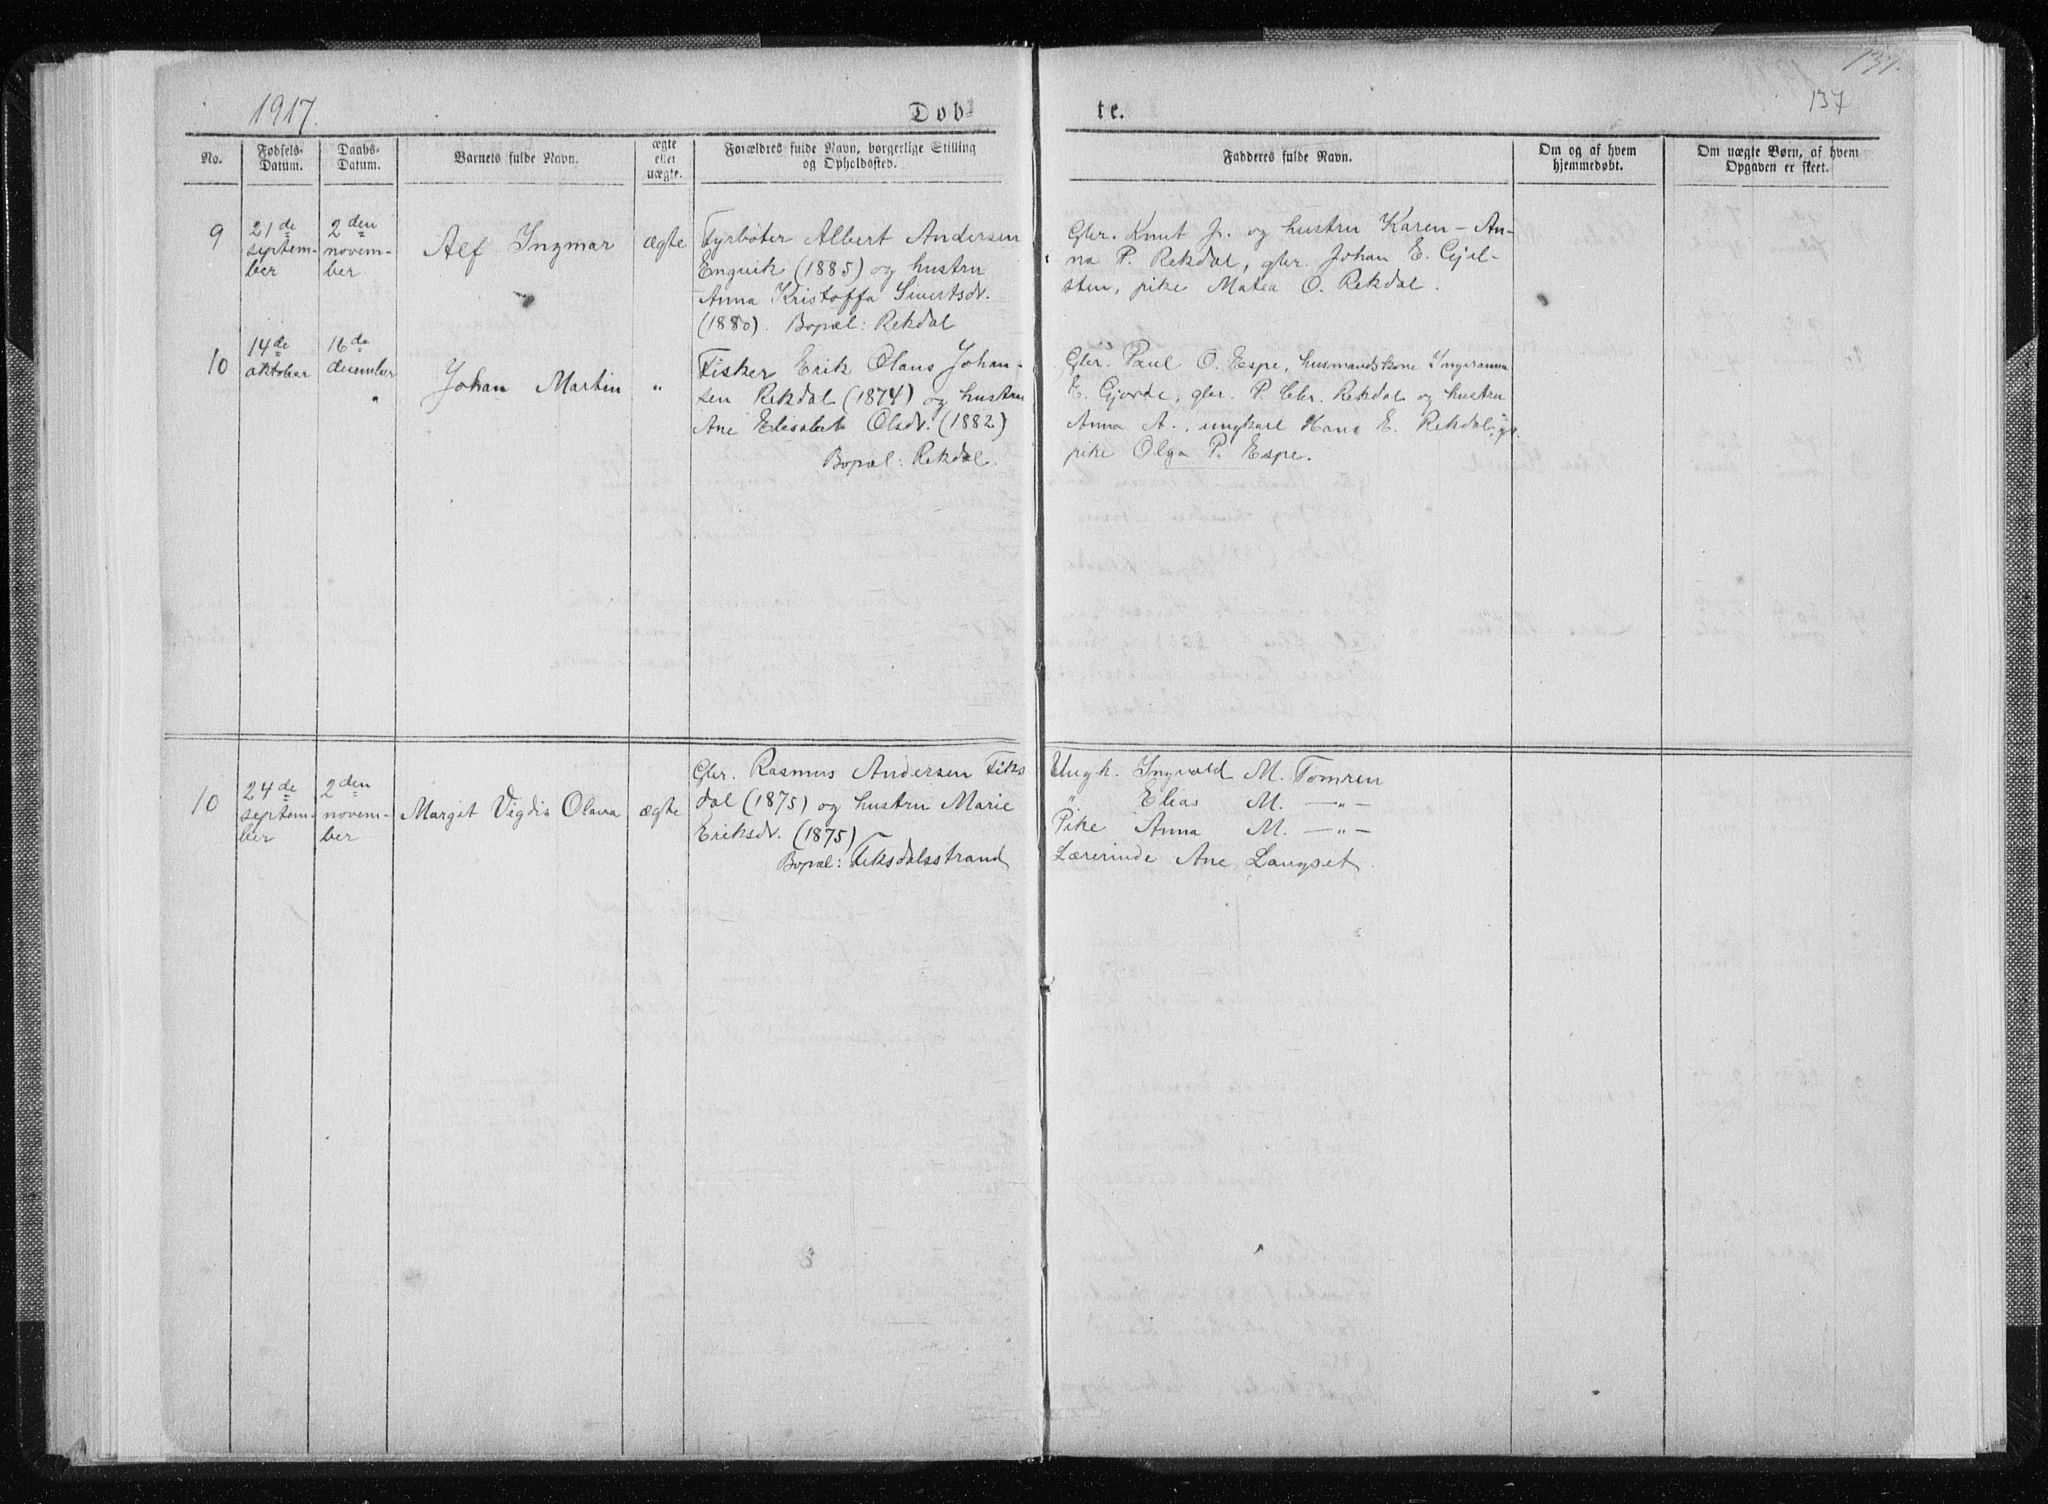 1917.
Døb-
te.
137.
137
No.
Fødsels-
Datum.
Daabs-
Datum.
Barnets fulde Navn.
ægte
eller
uægte.
Forældres fulde Navn, borgerlige Stilling
og Opholdssted.
Fadderes fulde Navn.
Om og af hvem
hjemmedøbt.
Om uægte Børn, af hvem
Opgaven er skeet.
9
21de
septem-
ber
2den
novem-
ber
Alf Ingmar
ægte
Fyrbøter Albert Andersen
Engvik (1885) og hustru
Anna Kristoffa Sivertsdr.
(1880). Bopæl: Rekdal
Gbr. Knut J. og hustru Karen-An-
na P. Rekdal, gbr. Johan E. Gjel-
sten, pike Matea O. Rekdal.
10
14de
oktober
16de
desember
Johan Martin
"
Fisker Erik Olaus Johan-
sen Rekdal (1874) og hustru
Ane Elisabet Olsdr. (1882)
Bopæl: Rekdal.
Gbr. Paul O. Espe, husmandskone Ingeranna
E. Gjerde, gbr. P. Chr. Rekdal og hustru
Anna A., ungkarl Hans E. Rekdal,
pike Olga P. Espe.
10
24de
septem-
ber
2den
novem-
ber
Margit Vigdis Olava
ægte
Gbr. Rasmus Andersen Fiks
dal (1875) og hustru Marie
Eriksdr. (1875)
Bopæl: Fiksdalsstrand
Ungk. Ingvald M. Tomren
" Elias M. —"—
Pike Anna M. —"—
Lærerinde Ane Langset.